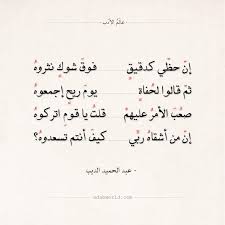 عالم الأدب
إنّ حظّي كدقيقٍ فوقَ شوكٍ نثروهُ
ثمّ قالوا لحُفاةٍ يومَ ريحٍ إجمعوهُ
صعُبَ الأمرُ عليهمْ قلتُ يا قومِ اتركوهُ
إنّ من أشقاهُ ربّي كيفَ أنتم تسعدوهُ؟
- عبد الحميد الديب
adabworld.com